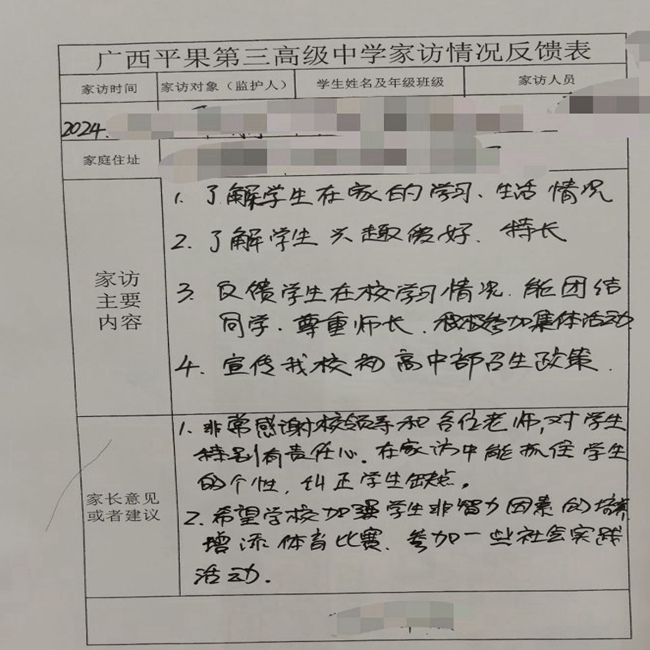 广西平果第三高级中学家访情况反馈表
家访时间 家访对象（监护人） 学生姓名及年级班级 家访人员
2024.
家庭住址
家访
主要
内容
1. 了解学生在家的学习、生活情况
2. 了解学生兴趣爱好、特长
3. 反馈学生在校学习情况.能团结
同学.尊重师长.积极参加集体活动
4. 宣传我校初高中部招生政策.
家长意见
或者建议
1. 非常感谢校领导和各位老师,对学生
特别有责任心.在家访中能抓住学生
的个性,纠正学生缺点。
2. 希望学校加强学生非智力因素的培养
增添体育比赛、参加一些社会实践
活动.